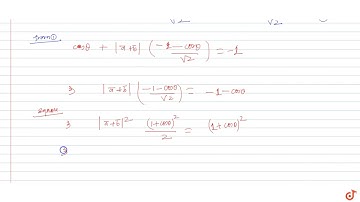 √2 √2
from ①
cosθ + |a̅+b̅| ( (-1-cosθ)/√2 ) = -1
⇒ |a̅+b̅| ( (-1-cosθ)/√2 ) = -1-cosθ
square
⇒ |a̅+b̅|² (1+cosθ)²/2 = (1+cosθ)²